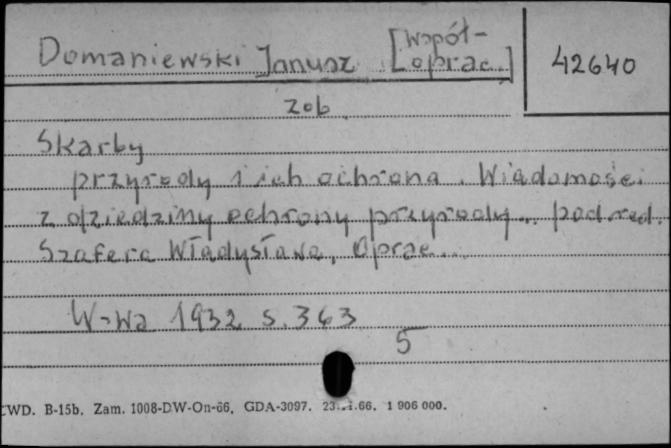 Domaniewski Janusz [Współ-
oprac.]
42640
zob.
Skarby
przyrody i ich ochrona. Wiadomości
z dziedziny ochrony przyrody... pod red.
Szafera Władysława, Oprac...
W-wa 1932 s. 363
5
CWD. B-15b, Zam. 1008-DW-On-66, GDA-3097. 66. 1 906 000.